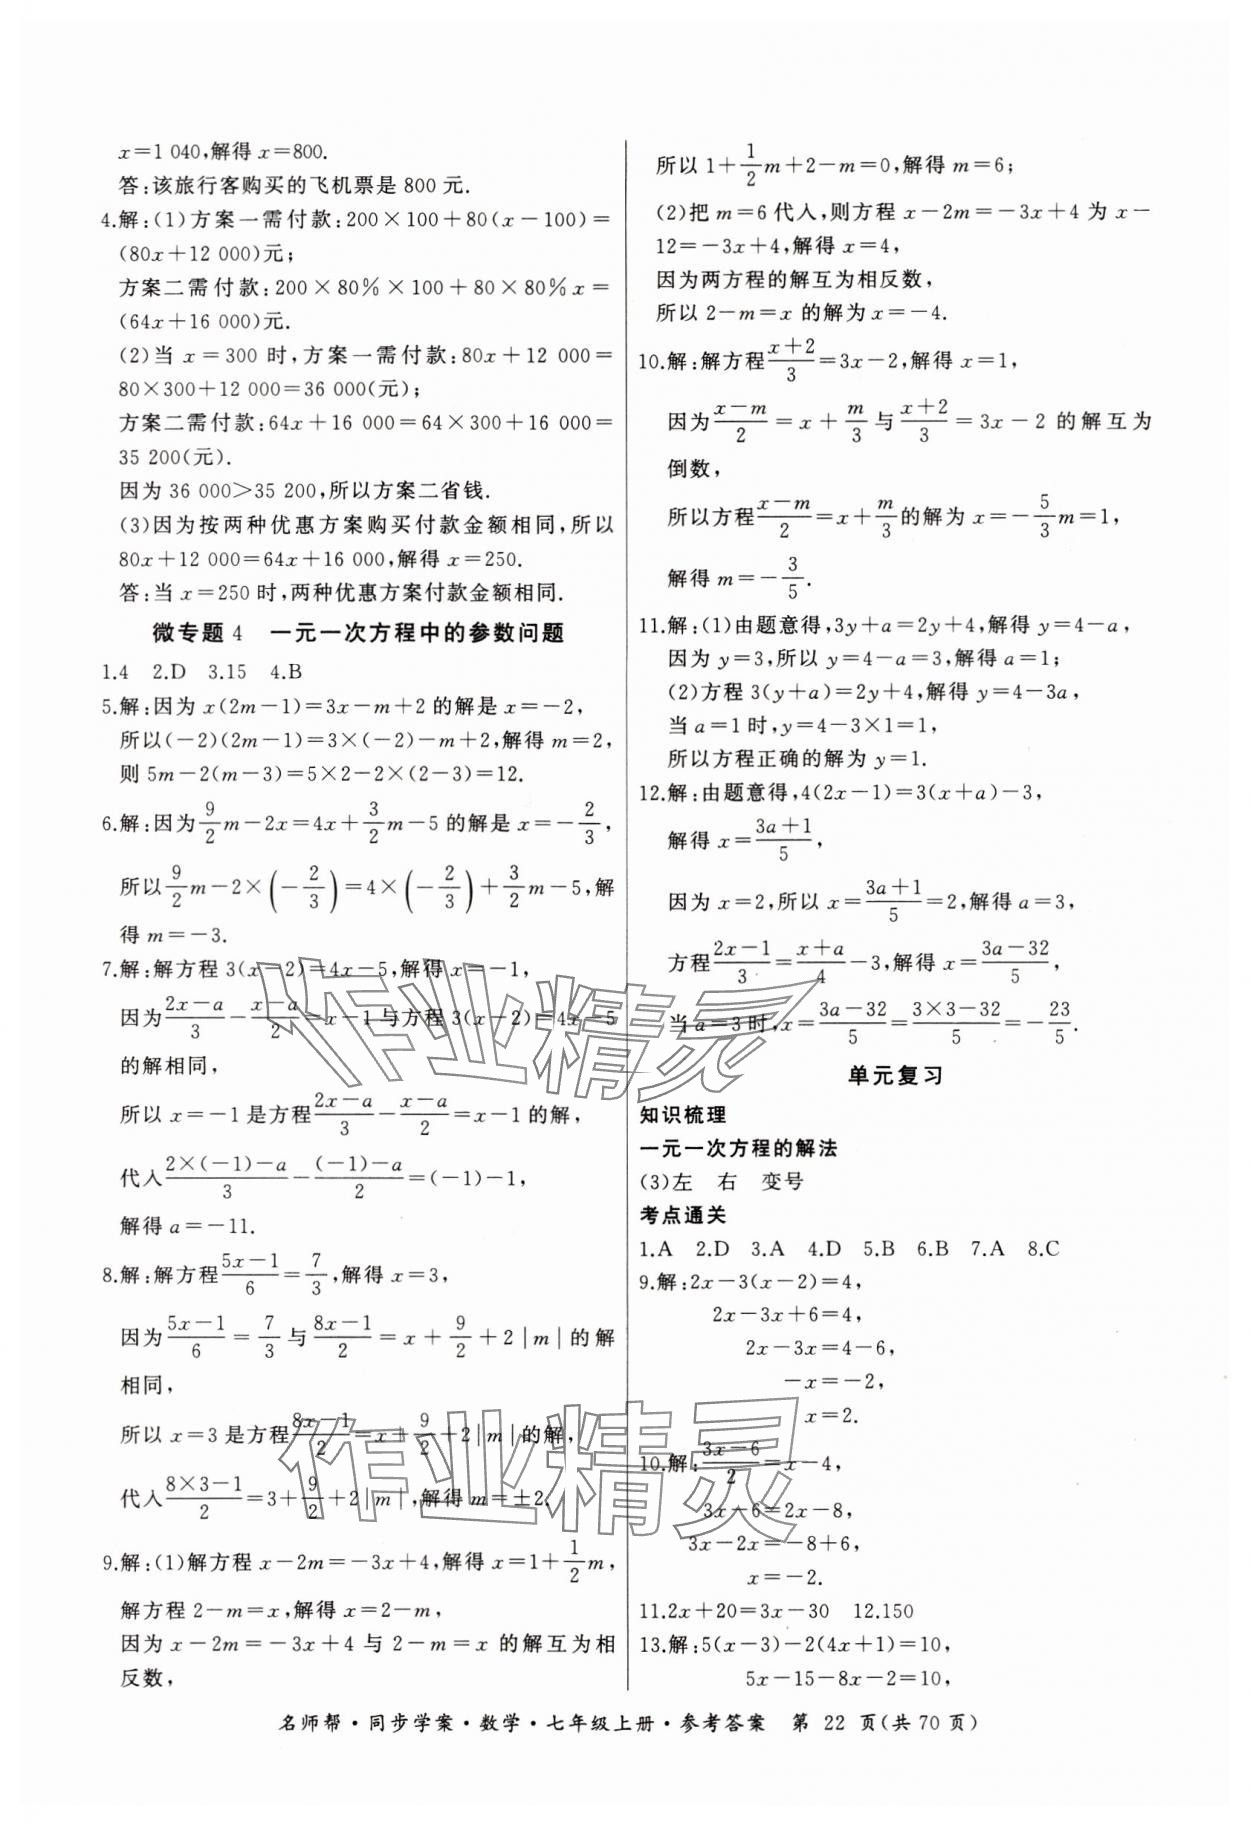 x=1 040,解得 x=800.
答:该旅行客购买的飞机票是 800 元.
4.解:(1)方案一需付款:200×100+80(x-100)=
(80x+12 000)元;
方案二需付款:200×80%×100+80×80%x=
(64x+16 000)元.
(2)当 x=300 时,方案一需付款:80x+12 000=
80×300+12 000=36 000(元);
方案二需付款:64x+16 000=64×300+16 000=
35 200(元).
因为 36 000>35 200,所以方案二省钱.
(3)因为按两种优惠方案购买付款金额相同,所以
80x+12 000=64x+16 000,解得 x=250.
答:当 x=250 时,两种优惠方案付款金额相同.
微专题 4 一元一次方程中的参数问题
1.4 2.D 3.15 4.B
5.解:因为 x(2m-1)=3x-m+2 的解是 x=-2,
所以(-2)(2m-1)=3×(-2)-m+2,解得 m=2,
则 5m-2(m-3)=5×2-2×(2-3)=12.
6.解:因为 9/2 m-2x=4x+3/2 m-5 的解是 x=-2/3,
所以 9/2 m-2×(-2/3)=4×(-2/3)+3/2 m-5,解
得 m=-3.
7.解:解方程 3(x-2)=4x-5,解得 x=-1,
因为 (2x-a)/3-(x-a)/2=x-1 与方程 3(x-2)=4x-5
的解相同,
所以 x=-1 是方程 (2x-a)/3-(x-a)/2=x-1 的解,
代入 (2×(-1)-a)/3-((-1)-a)/2=(-1)-1,
解得 a=-11.
8.解:解方程 (5x-1)/6=7/3,解得 x=3,
因为 (5x-1)/6=7/3 与 (8x-1)/2=x+9/2+2|m| 的解
相同,
所以 x=3 是方程 (8x-1)/2=x+9/2+2|m| 的解,
代入 (8×3-1)/2=3+9/2+2|m|,解得 m=±2.
9.解:(1)解方程 x-2m=-3x+4,解得 x=1+1/2 m,
解方程 2-m=x,解得 x=2-m,
因为 x-2m=-3x+4 与 2-m=x 的解互为相
反数,
所以 1+1/2 m+2-m=0,解得 m=6;
(2)把 m=6 代入,则方程 x-2m=-3x+4 为 x-
12=-3x+4,解得 x=4,
因为两方程的解互为相反数,
所以 2-m=x 的解为 x=-4.
10.解:解方程 (x+2)/3=3x-2,解得 x=1,
因为 (x-m)/2=x+m/3 与 (x+2)/3=3x-2 的解互为
倒数,
所以方程 (x-m)/2=x+m/3 的解为 x=-5/3 m=1,
解得 m=-3/5.
11.解:(1)由题意得,3y+a=2y+4,解得 y=4-a,
因为 y=3,所以 y=4-a=3,解得 a=1;
(2)方程 3(y+a)=2y+4,解得 y=4-3a,
当 a=1 时,y=4-3×1=1,
所以方程正确的解为 y=1.
12.解:由题意得,4(2x-1)=3(x+a)-3,
解得 x=(3a+1)/5,
因为 x=2,所以 x=(3a+1)/5=2,解得 a=3,
方程 (2x-1)/3=(x+a)/4-3,解得 x=(3a-32)/5,
当 a=3 时,x=(3a-32)/5=(3×3-32)/5=-23/5.
单元复习
知识梳理
一元一次方程的解法
(3)左 右 变号
考点通关
1.A 2.D 3.A 4.D 5.B 6.B 7.A 8.C
9.解:2x-3(x-2)=4,
2x-3x+6=4,
2x-3x=4-6,
-x=-2,
x=2.
10.解:(3x-6)/2=x-4,
3x-6=2x-8,
3x-2x=-8+6,
x=-2.
11.2x+20=3x-30 12.150
13.解:5(x-3)-2(4x+1)=10,
5x-15-8x-2=10,
名师帮·同步学案·数学·七年级上册·参考答案 第 22 页(共 70 页)
作业精灵
作业精灵